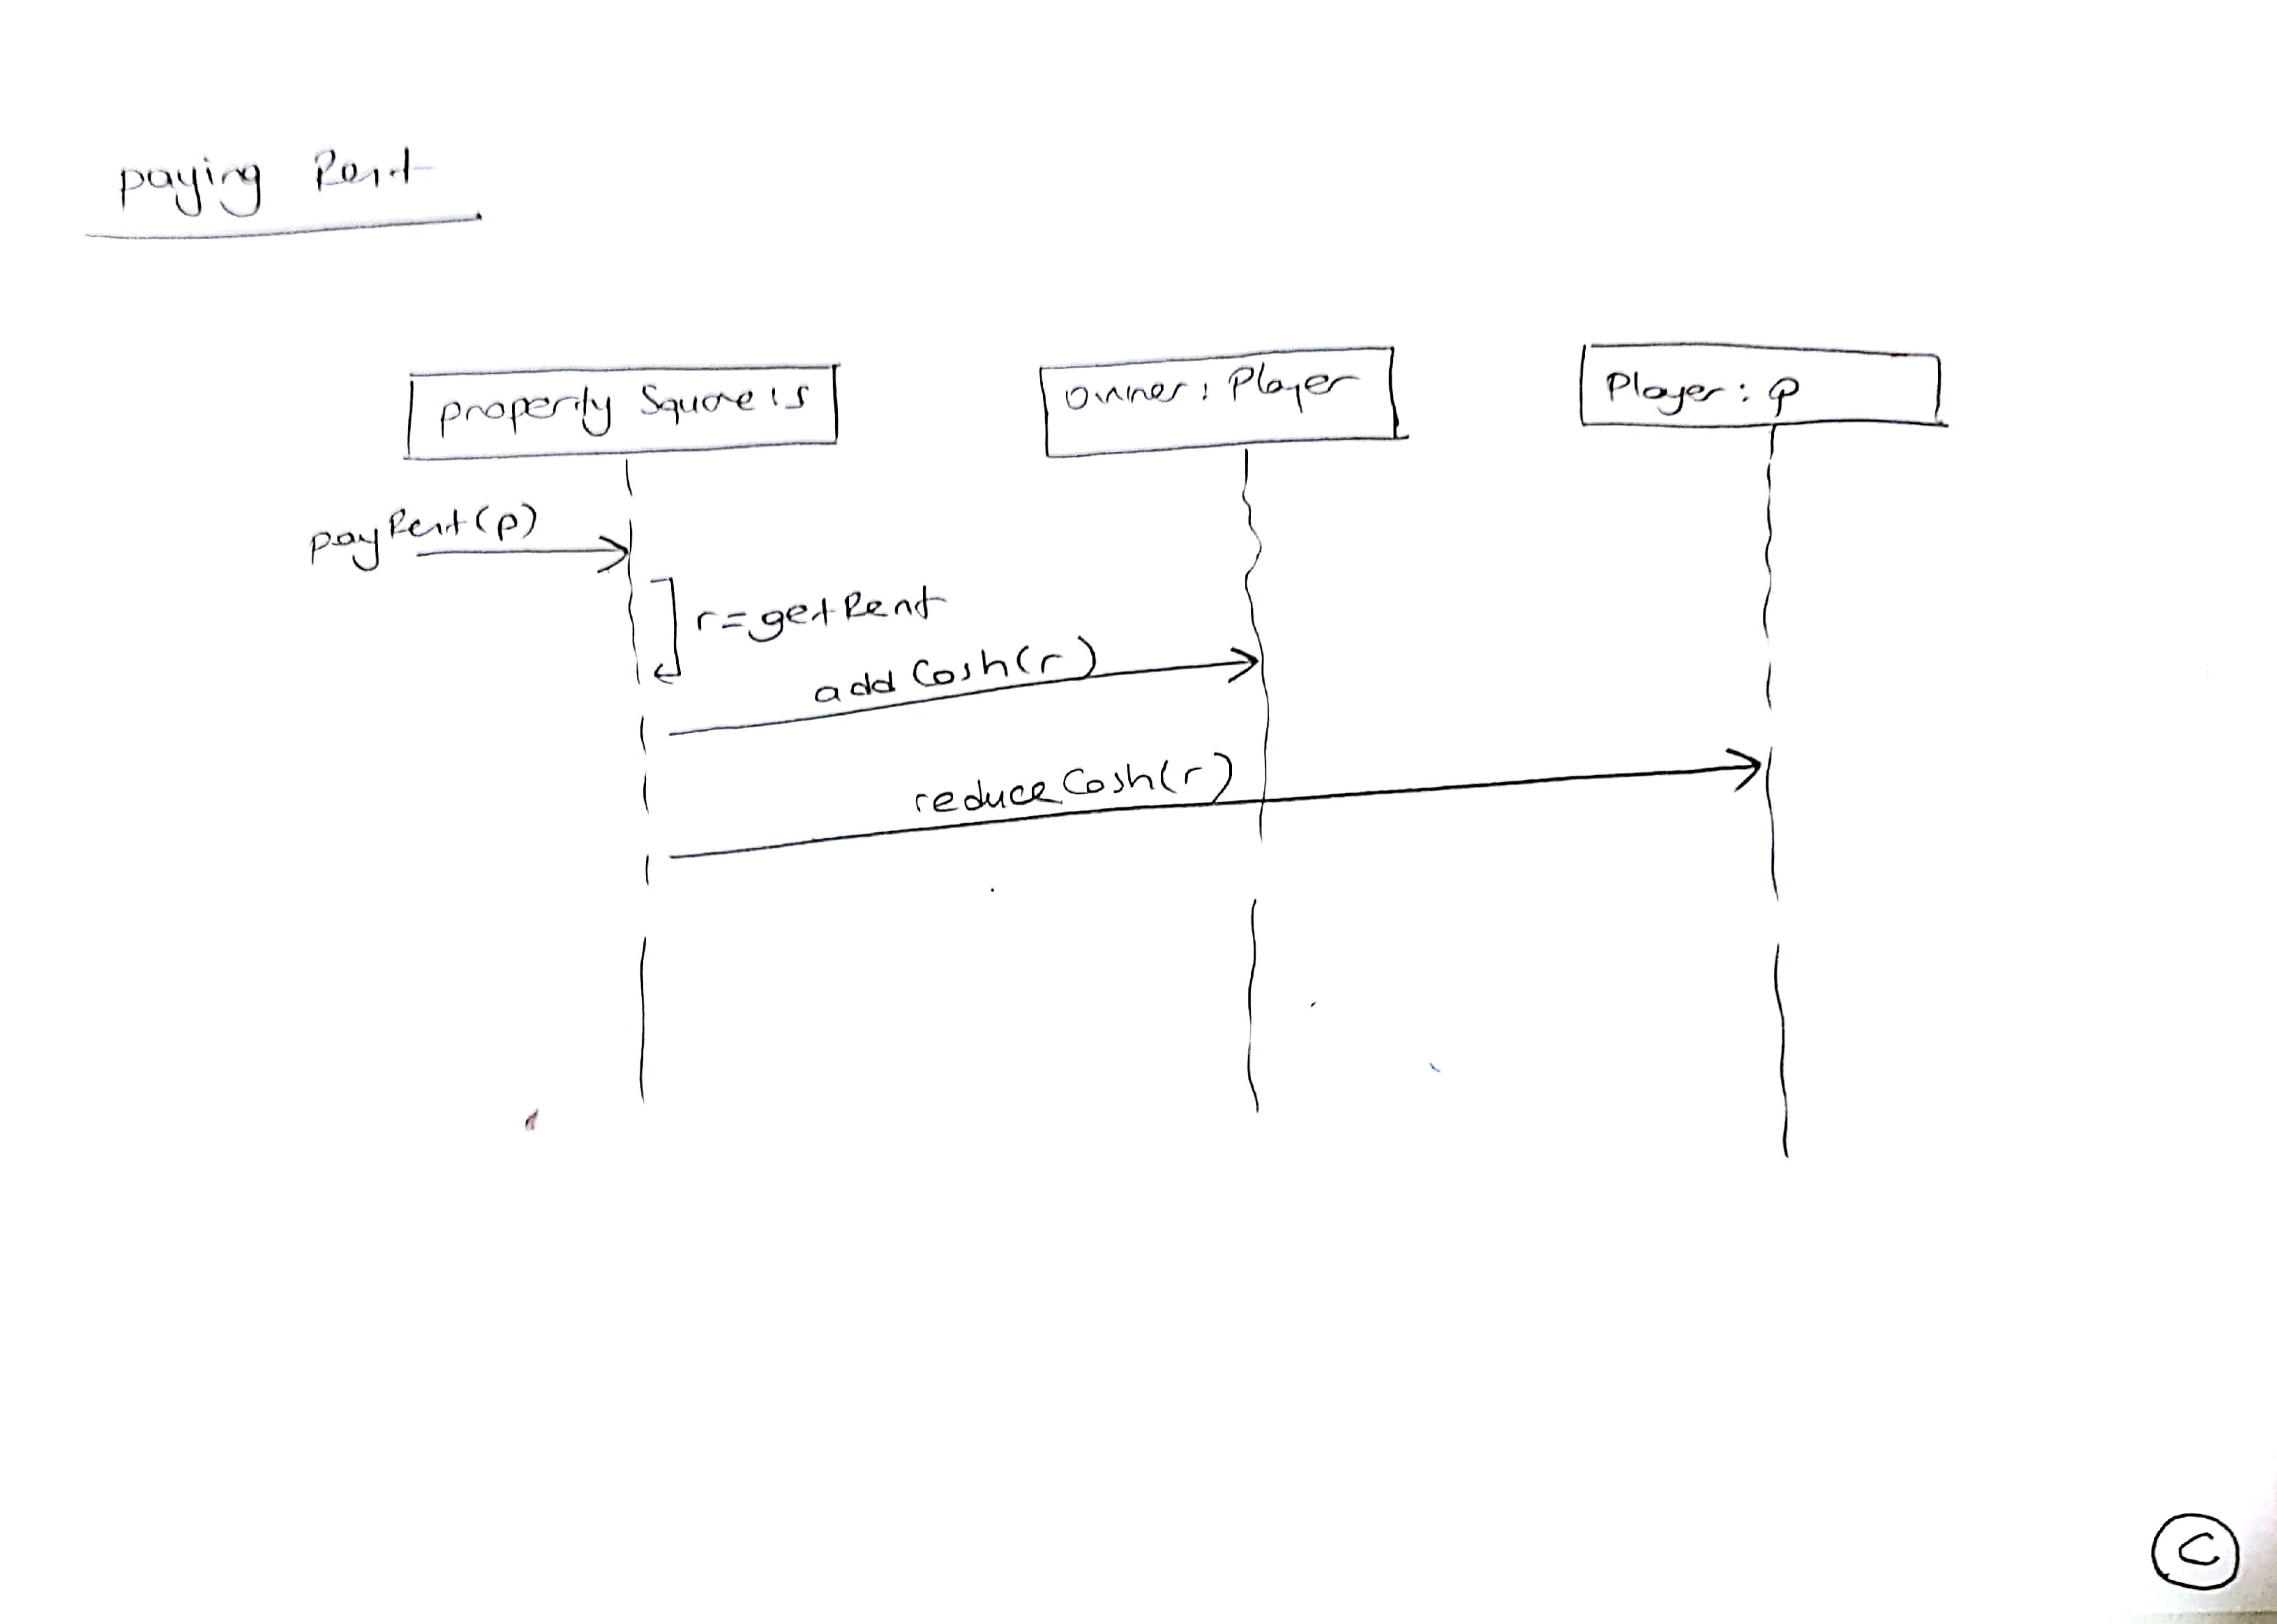 paying Rent
property Square : s
owner : Player
Player : p
payRent(p)
r=getRent
addCash(r)
reduceCash(r)
C